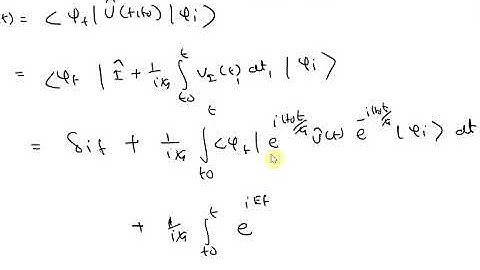 t) = < φ_f | Û(t,t₀) | φ_i >
= < φ_f | Î + 1/iℏ ∫_{t0}^{t} V_I(t₁) dt₁ | φ_i >
= δ_if + 1/iℏ ∫_{t0}^{t} < φ_f | e^{iH₀t/ℏ} Û(t) e^{-iH₀t/ℏ} | φ_i > dt
+ 1/iℏ ∫_{t0}^{t} e^{iEf